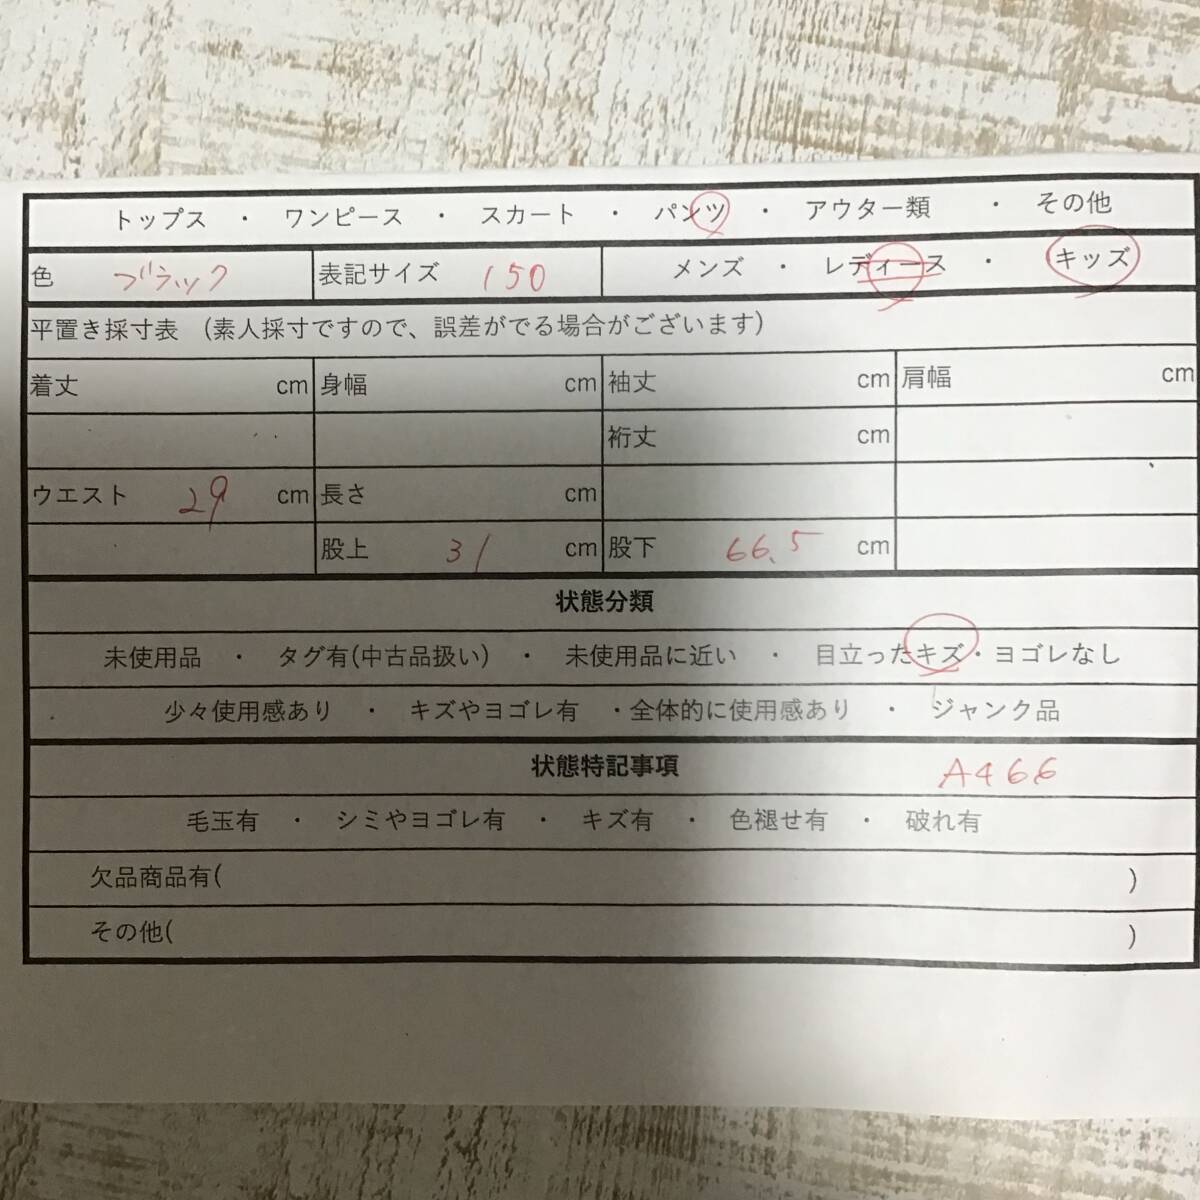 トップス ・ ワンピース ・ スカート ・ パンツ ・ アウター類 ・ その他
色 ブラック 表記サイズ 150 メンズ ・ レディース ・ キッズ
平置き採寸表 (素人採寸ですので、誤差がでる場合がございます)
着丈 cm 身幅 cm 袖丈 cm 肩幅 cm
裄丈 cm
ウエスト 29 cm 長さ cm
股上 31 cm 股下 66.5 cm
状態分類
未使用品 ・ タグ有(中古品扱い) ・ 未使用品に近い ・ 目立ったキズ・ヨゴレなし
少々使用感あり ・ キズやヨゴレ有 ・全体的に使用感あり ・ ジャンク品
状態特記事項 A466
毛玉有 ・ シミやヨゴレ有 ・ キズ有 ・ 色褪せ有 ・ 破れ有
欠品商品有( )
その他( )